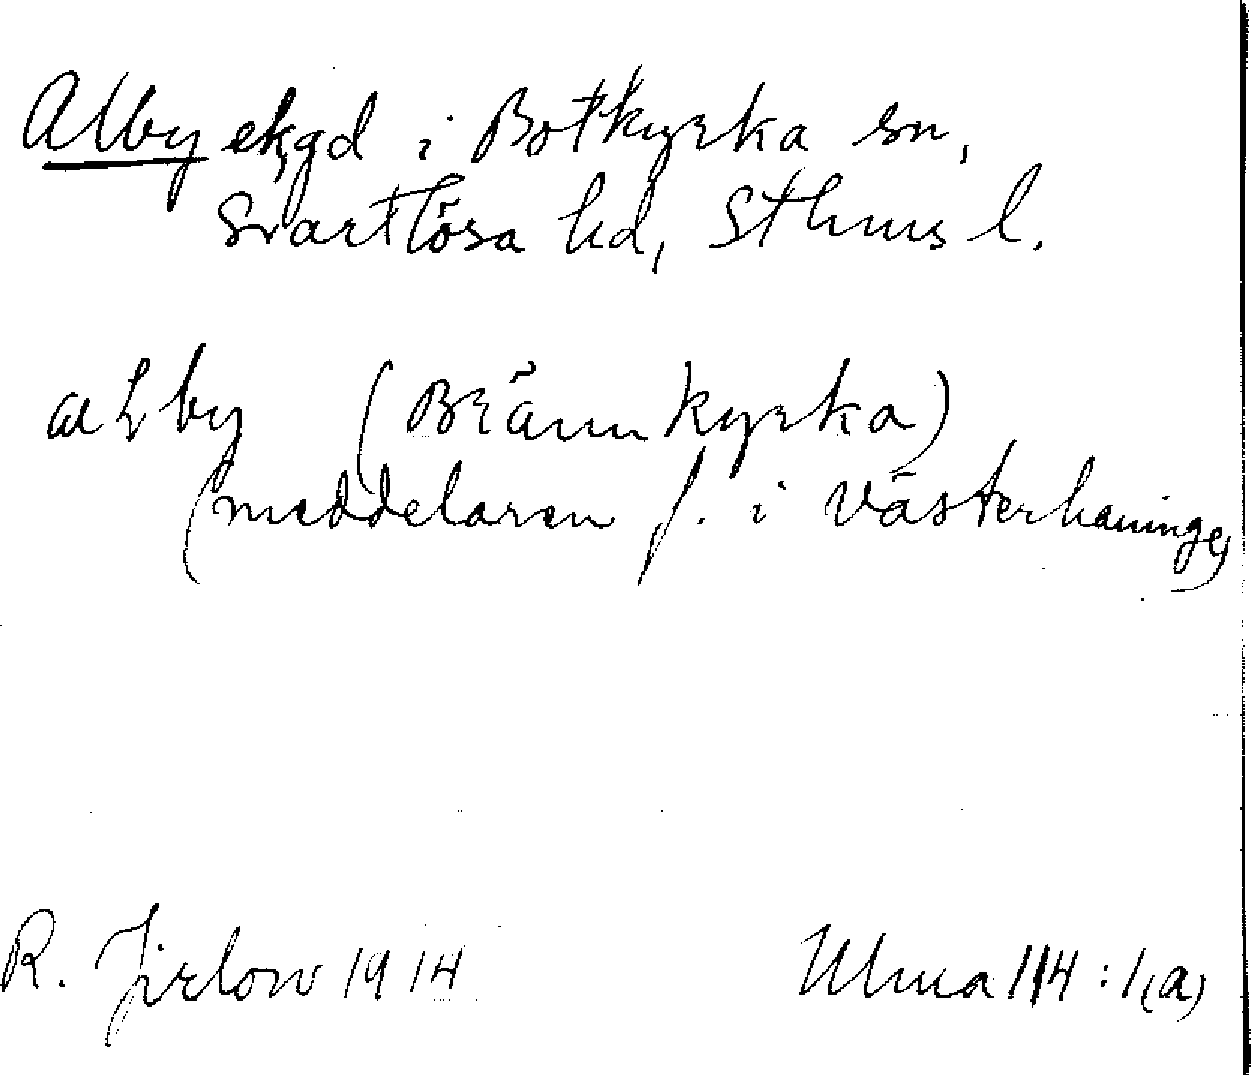 Alby ekgd i Botkyrka sn,
Svartlösa hd, Sthms l.
aLby (Brännkyrka)
(meddelaren f. i Västerhaninge)
R. Jirlow 1914 Ulma 114:1(a)